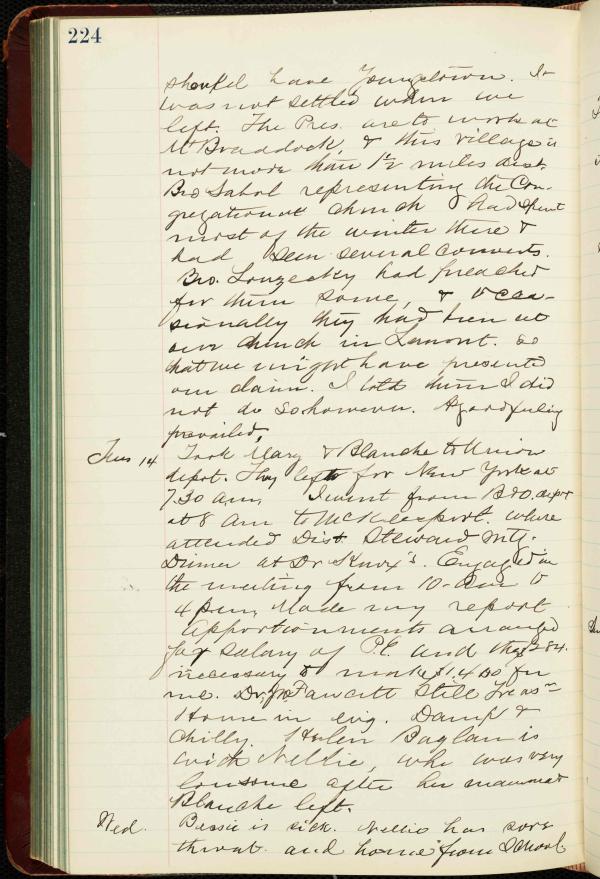 224
should have Youngstown. It
was not settled when we
left. The Pres. are to work at
Mt Braddock, & this village is
not more than 1 1/2 miles dist.
Bro Sahol representing the Con-
gregational Church & had spent
most of the winter there &
had seen several converts.
Bro. Louzecky had preached
for them some, & occa-
sionally they had been at
our church in Lemont. So
that we might have presented
our claim. I told them I did
not do so however. A good feeling
prevailed.
Tues 14 Took Mary & Blanche to Union
depot. They left for New York at
7.30 a.m. I went from B&O. depot
at 8 am to McKeesport. where
attended Dist. Steward mtg.
Dinner at Dr Knox's. Engaged in
the meeting from 10-am to
4 p.m. Made my report
Apportionments arranged
for salary of P.E. and the
necessary to make $1400 for
me. Dr. Fawcett still Treas.
Home in evg. Damp &
chilly. Helen Baglan is
with Nellie, who was very
lonsome after her mamma &
Blanche left.
Wed. Bessie is sick. Nellie has sore
throat and home from School